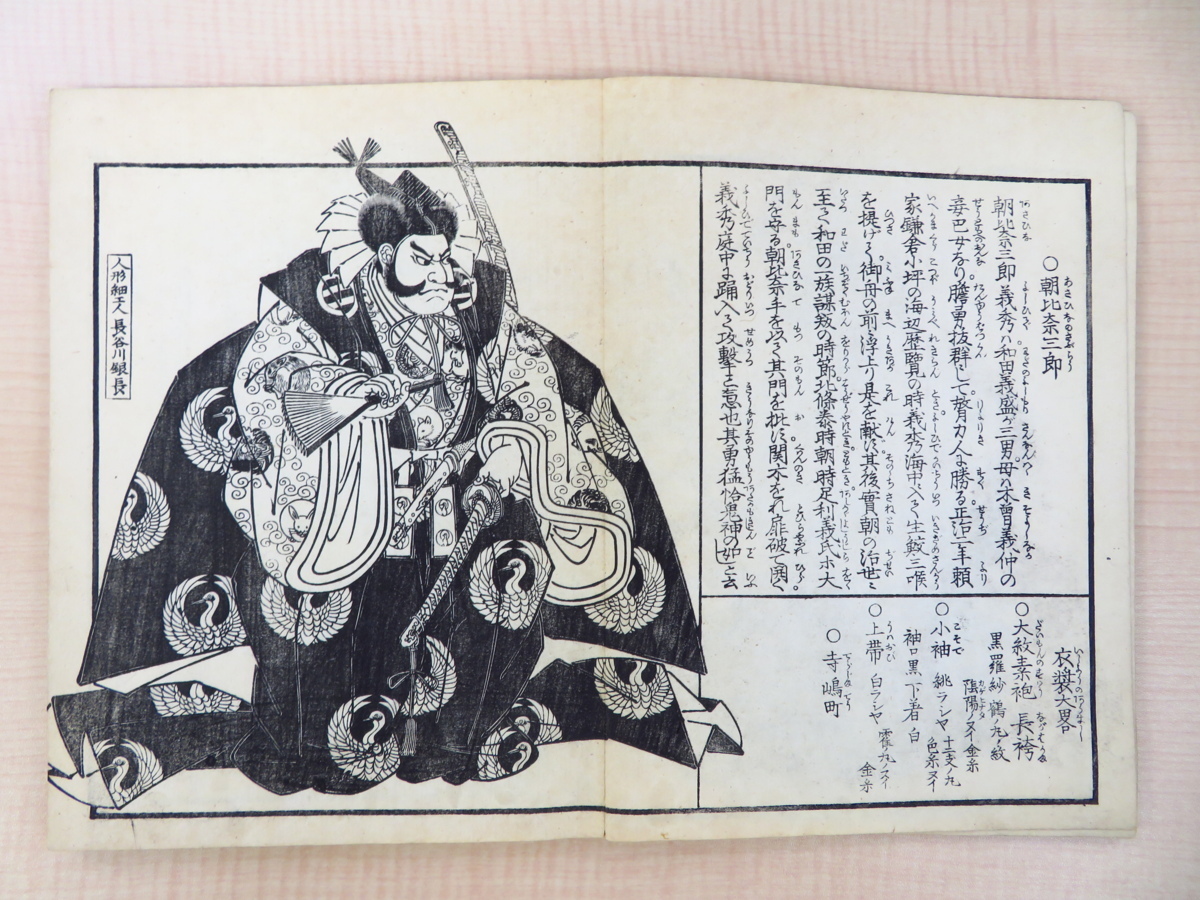 ○朝比奈三郎
朝比奈三郎義秀ハ和田義盛が三男母ハ木曽義仲の
妾巴女なり膽勇抜群して膂力人に勝る正治二年頼
家鎌倉小坪の海辺歴覧の時義秀海中に入て生鮫三喉
を提げて御舟の前に浮ふり是を献ず其後實朝の治世に
至て和田の一族謀叛の時郎北條泰時朝時足利義氏ホ大
門を守る朝比奈手を以て其門を批に関木をれ扉破て開く
義秀庭中に踊入て攻撃こと急也其勇猛恰鬼神の如しと云
衣裳大畧
○大紋素袍 長袴
黒羅紗鶴ノ丸ノ紋
陰陽ノヌイ金糸
○小袖 緋ラシヤ 十二支ノ丸
色糸ヌイ
袖口黒 下着白
○上帯 白ラシヤ 霍ノ丸ノヌイ
金糸
○寺嶋町
人形細工人 長谷川銀長